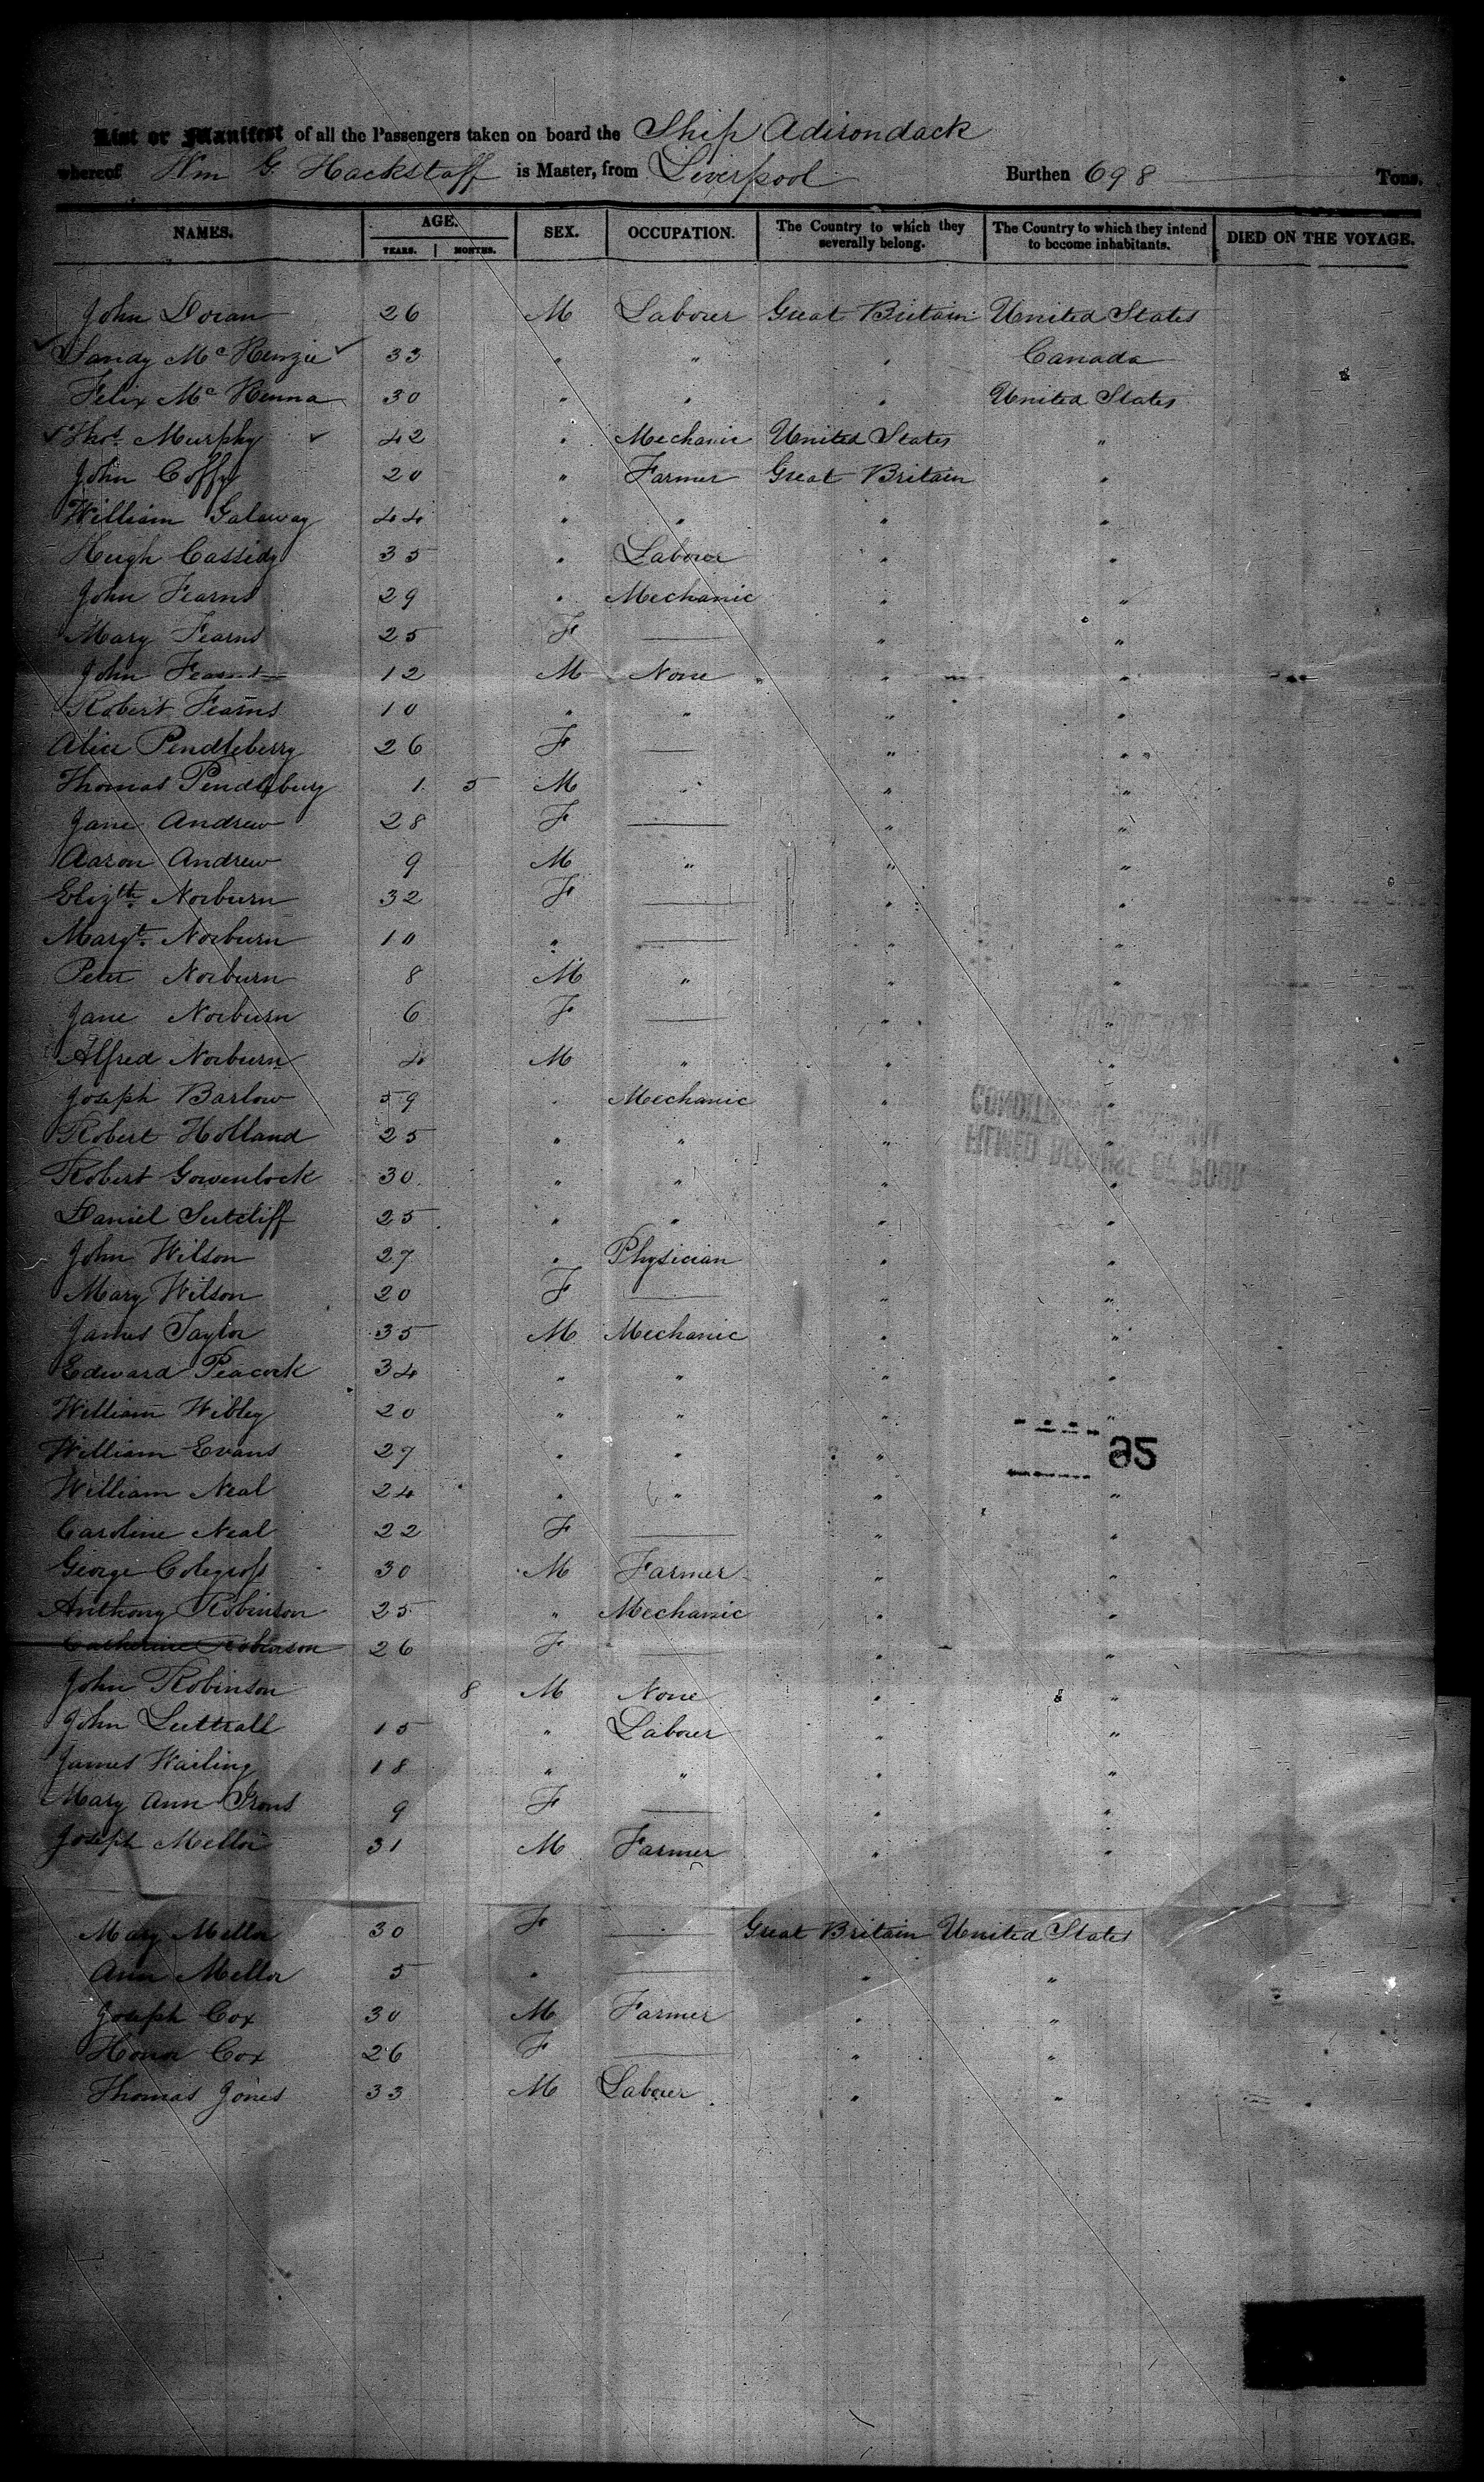 List or Manifest of all the Passengers taken on board the Ship Adirondack
whereof Wm G. Hackstaff is Master, from Liverpool Burthen 698 Tons.
NAMES. AGE. SEX. OCCUPATION. The Country to which they severally belong. The Country to which they intend to become inhabitants. DIED ON THE VOYAGE.
YEARS. MONTHS.
John Doran 26 M Labourer Great Britain United States
Sandy McKenzie 33 " " " Canada
Felix McKenna 30 " " " United States
Thos. Murphy 42 " Mechanic United States "
John Coffy 20 " Farmer Great Britain "
William Galaway 44 " " " "
Hugh Cassidy 35 " Labourer " "
John Fearns 29 " Mechanic " "
Mary Fearns 25 F — " "
John Fearns 12 M None " "
Robert Fearns 10 " " " "
Alice Pendleberry 26 F — " "
Thomas Pendlebury 1 5 M " " "
Jane Andrew 28 F — " "
Aaron Andrew 9 M " " "
Elizth. Norburn 32 F — " "
Margt. Norburn 10 " — " "
Peter Norburn 8 M " " "
Jane Norburn 6 F — " "
Alfred Norburn 4 M " " "
Joseph Barlow 59 " Mechanic " "
Robert Holland 25 " " " "
Robert Gowenlock 30 " " " "
Daniel Sutcliff 25 " " " "
John Wilson 27 " Physician " "
Mary Wilson 20 F — " "
James Taylor 35 M Mechanic " "
Edward Peacock 34 " " " "
William Wibley 20 " " " "
William Evans 27 " " " "
William Neal 24 " " " "
Caroline Neal 22 F — " "
George Colegross 30 M Farmer " "
Anthony Robinson 25 " Mechanic " "
Catherine Robinson 26 F — " "
John Robinson 8 M None " "
John Luttrall 15 " Labourer " "
James Wailing 18 " " " "
Mary Ann Irons 9 F — " "
Joseph Mellor 31 M Farmer " "
Mary Mellor 30 F — Great Britain United States
Ann Mellor 5 " — " "
Joseph Cox 30 M Farmer " "
Honor Cox 26 F — " "
Thomas Jones 33 M Labourer " "